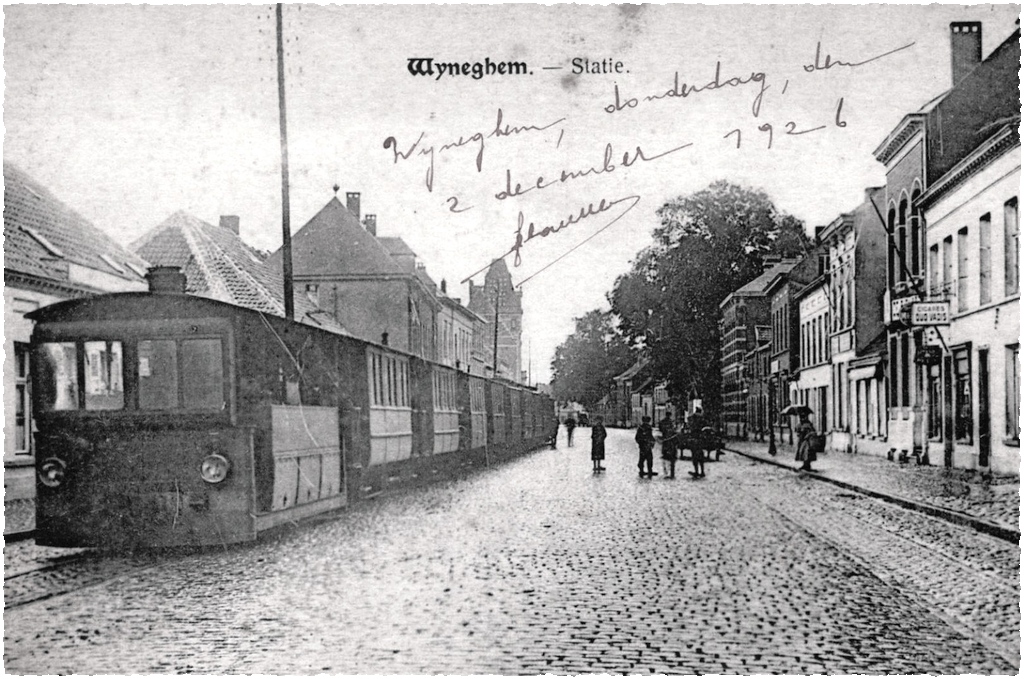 Wyneghem. — Statie.
Wyneghem, donderdag, den
2 december 1926
CIGARES
QUO VADIS